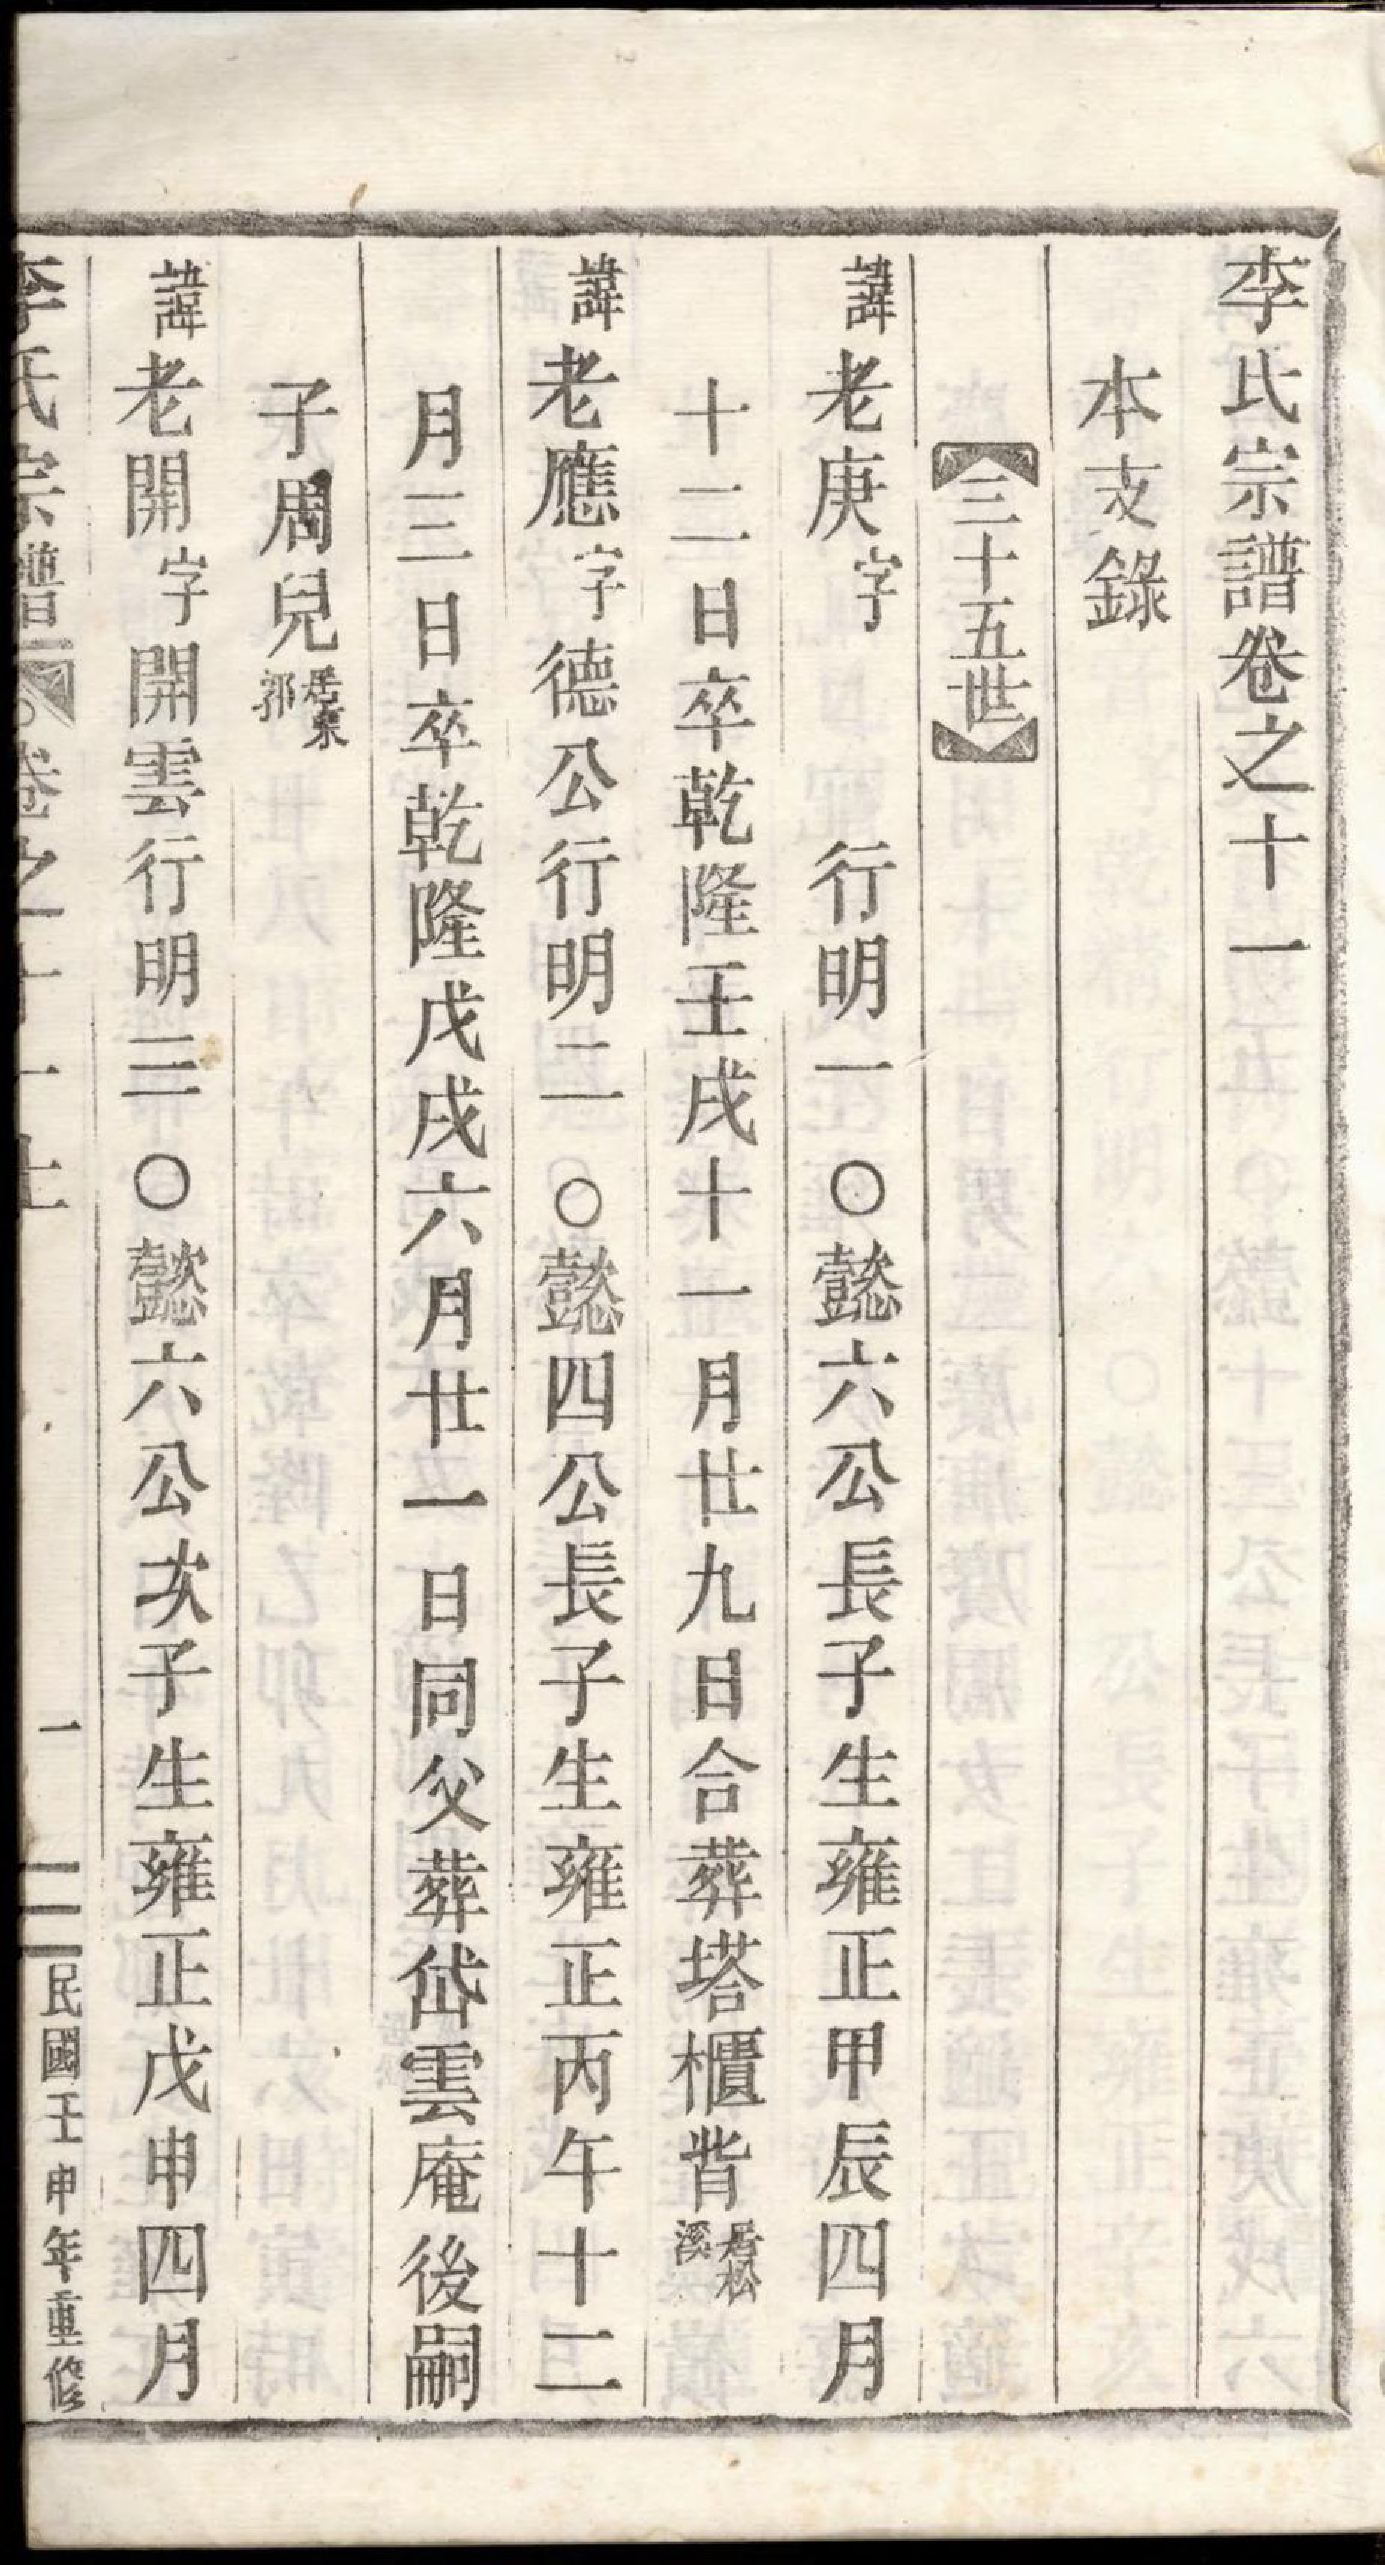 李氏宗譜卷之十一
本支錄
三十五世
諱老庚字　行明一〇懿六公長子生雍正甲辰四月
十二日卒乾隆壬戌十一月廿九日合葬塔櫃背居松溪
諱老應字德公行明二〇懿四公長子生雍正丙午十二
月三日卒乾隆戊戌六月廿一日同父葬岱雲庵後嗣
子周兒居東郭
諱老開字開雲行明三〇懿六公次子生雍正戊申四月
李氏宗譜 卷之十一上 一 民國壬申年重修